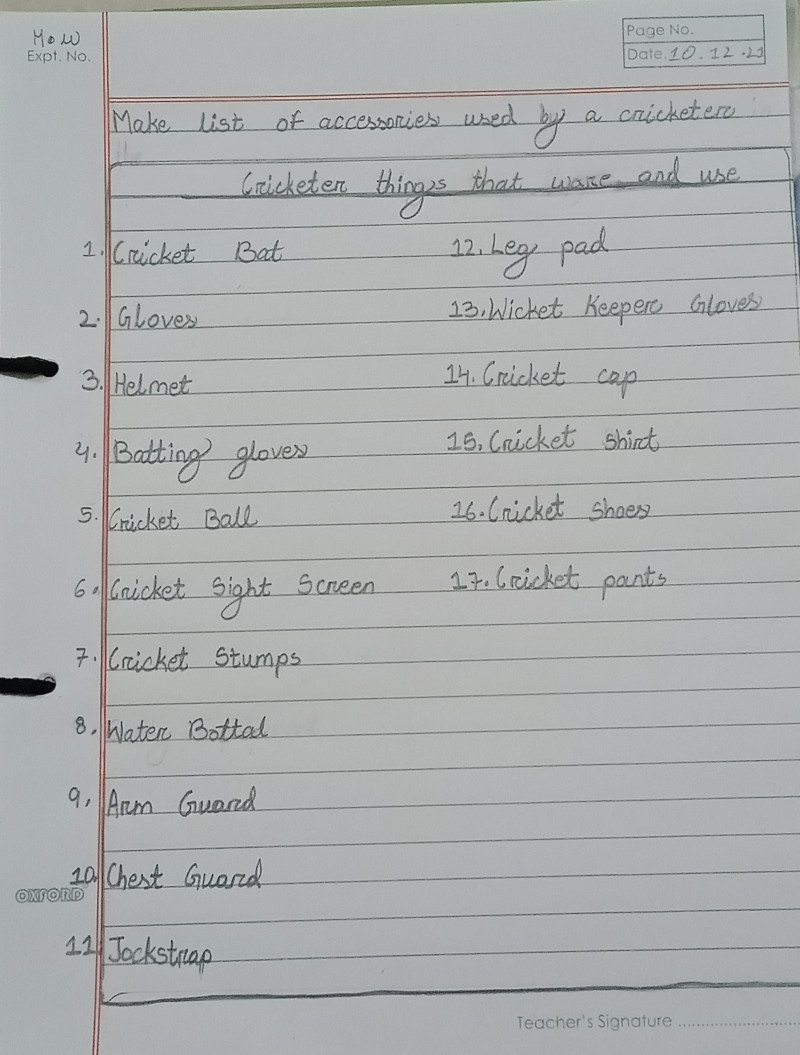 H.W
Expt. No.
Page No.
Date. 10.12.21
Make list of accessories used by a cricketer
Cricketer things that ware and use
1. Cricket Bat
2. Gloves
3. Helmet
4. Batting gloves
5. Cricket Ball
6. Cricket Sight Screen
7. Cricket Stumps
8. Water Bottal
9, Arm Guard
10. Chest Guard
11. Jockstrap
12. Leg pad
13. Wicket Keeper Gloves
14. Cricket cap
15. Cricket shirt
16. Cricket shoes
17. Cricket pants
OXFORD
Teacher's Signature